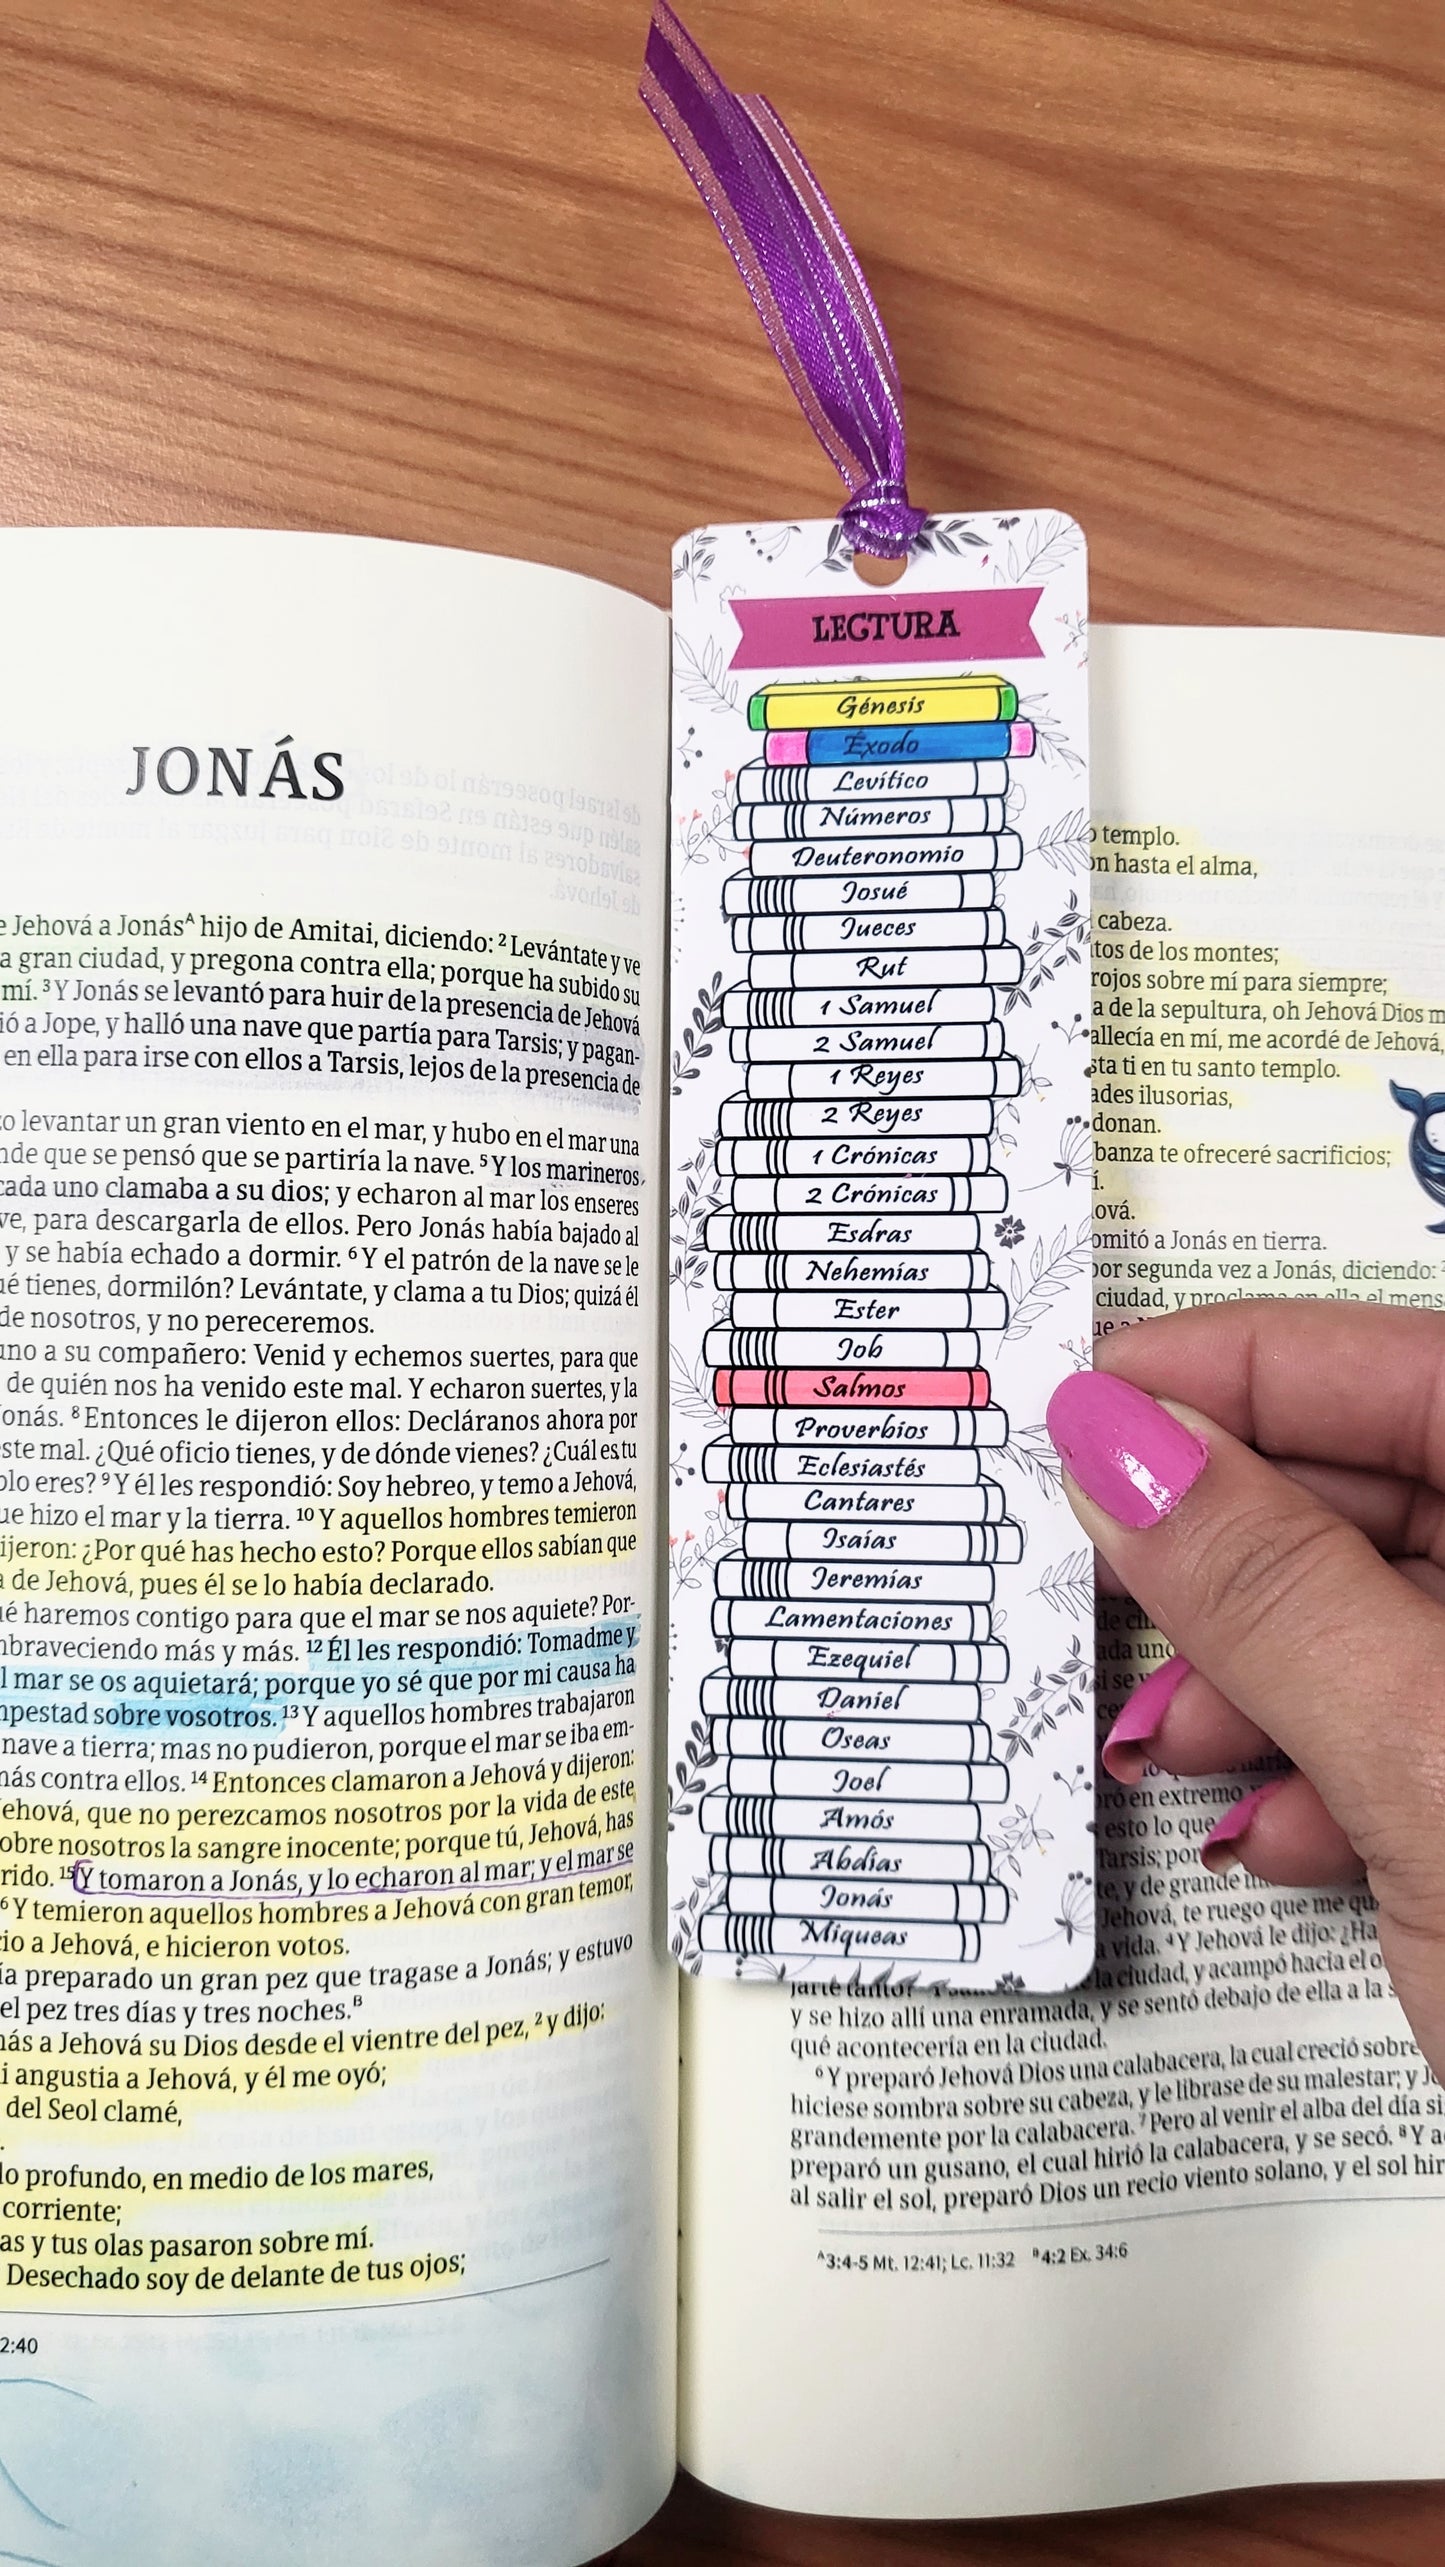 JONÁS
e Jehová a Jonásᴬ hijo de Amitai, diciendo: ² Levántate y ve
a gran ciudad, y pregona contra ella; porque ha subido su
mí. ³ Y Jonás se levantó para huir de la presencia de Jehová
ió a Jope, y halló una nave que partía para Tarsis; y pagan-
en ella para irse con ellos a Tarsis, lejos de la presencia de
o levantar un gran viento en el mar, y hubo en el mar una
nde que se pensó que se partiría la nave. ⁵ Y los marineros
cada uno clamaba a su dios; y echaron al mar los enseres
ve, para descargarla de ellos. Pero Jonás había bajado al
y se había echado a dormir. ⁶ Y el patrón de la nave se le
ué tienes, dormilón? Levántate, y clama a tu Dios; quizá él
de nosotros, y no pereceremos.
uno a su compañero: Venid y echemos suertes, para que
de quién nos ha venido este mal. Y echaron suertes, y la
onás. ⁸ Entonces le dijeron ellos: Decláranos ahora por
este mal. ¿Qué oficio tienes, y de dónde vienes? ¿Cuál es tu
blo eres? ⁹ Y él les respondió: Soy hebreo, y temo a Jehová,
ue hizo el mar y la tierra. ¹⁰ Y aquellos hombres temieron
ijeron: ¿Por qué has hecho esto? Porque ellos sabían que
a de Jehová, pues él se lo había declarado.
ué haremos contigo para que el mar se nos aquiete? Por-
mbraveciendo más y más. ¹² Él les respondió: Tomadme y
l mar se os aquietará; porque yo sé que por mi causa ha
mpestad sobre vosotros. ¹³ Y aquellos hombres trabajaron
nave a tierra; mas no pudieron, porque el mar se iba em-
más contra ellos. ¹⁴ Entonces clamaron a Jehová y dijeron:
Jehová, que no perezcamos nosotros por la vida de este
obre nosotros la sangre inocente; porque tú, Jehová, has
rido. ¹⁵ Y tomaron a Jonás, y lo echaron al mar; y el mar se
⁶ Y temieron aquellos hombres a Jehová con gran temor,
io a Jehová, e hicieron votos.
ía preparado un gran pez que tragase a Jonás; y estuvo
el pez tres días y tres noches.ᴮ
nás a Jehová su Dios desde el vientre del pez, ² y dijo:
i angustia a Jehová, y él me oyó;
del Seol clamé,
lo profundo, en medio de los mares,
corriente;
as y tus olas pasaron sobre mí.
Desechado soy de delante de tus ojos;
2:40
LECTURA
Génesis
Éxodo
Levítico
Números
Deuteronomio
Josué
Jueces
Rut
1 Samuel
2 Samuel
1 Reyes
2 Reyes
1 Crónicas
2 Crónicas
Esdras
Nehemías
Ester
Job
Salmos
Proverbios
Eclesiastés
Cantares
Isaías
Jeremías
Lamentaciones
Ezequiel
Daniel
Oseas
Joel
Amós
Abdías
Jonás
Miqueas
templo.
on hasta el alma,
cabeza.
tos de los montes;
rojos sobre mí para siempre;
a de la sepultura, oh Jehová Dios m
allecía en mí, me acordé de Jehová,
sta ti en tu santo templo.
ades ilusorias,
donan.
banza te ofreceré sacrificios;
í.
ová.
omitó a Jonás en tierra.
por segunda vez a Jonás, diciendo:
ciudad, y proclama en ella el mens
ada uno
si se
ró en extremo
esto lo que
Tarsis; por
te, y de grande
Jehová, te ruego que me qu
a vida. ⁴ Y Jehová le dijo: ¿Ha
la ciudad, y acampó hacia el o
y se hizo allí una enramada, y se sentó debajo de ella a la s
qué acontecería en la ciudad.
⁶ Y preparó Jehová Dios una calabacera, la cual creció sobre
hiciese sombra sobre su cabeza, y le librase de su malestar; y Jo
grandemente por la calabacera. ⁷ Pero al venir el alba del día si
preparó un gusano, el cual hirió la calabacera, y se secó. ⁸ Y a
al salir el sol, preparó Dios un recio viento solano, y el sol hir
ᴬ3:4-5 Mt. 12:41; Lc. 11:32 ᴮ4:2 Ex. 34:6